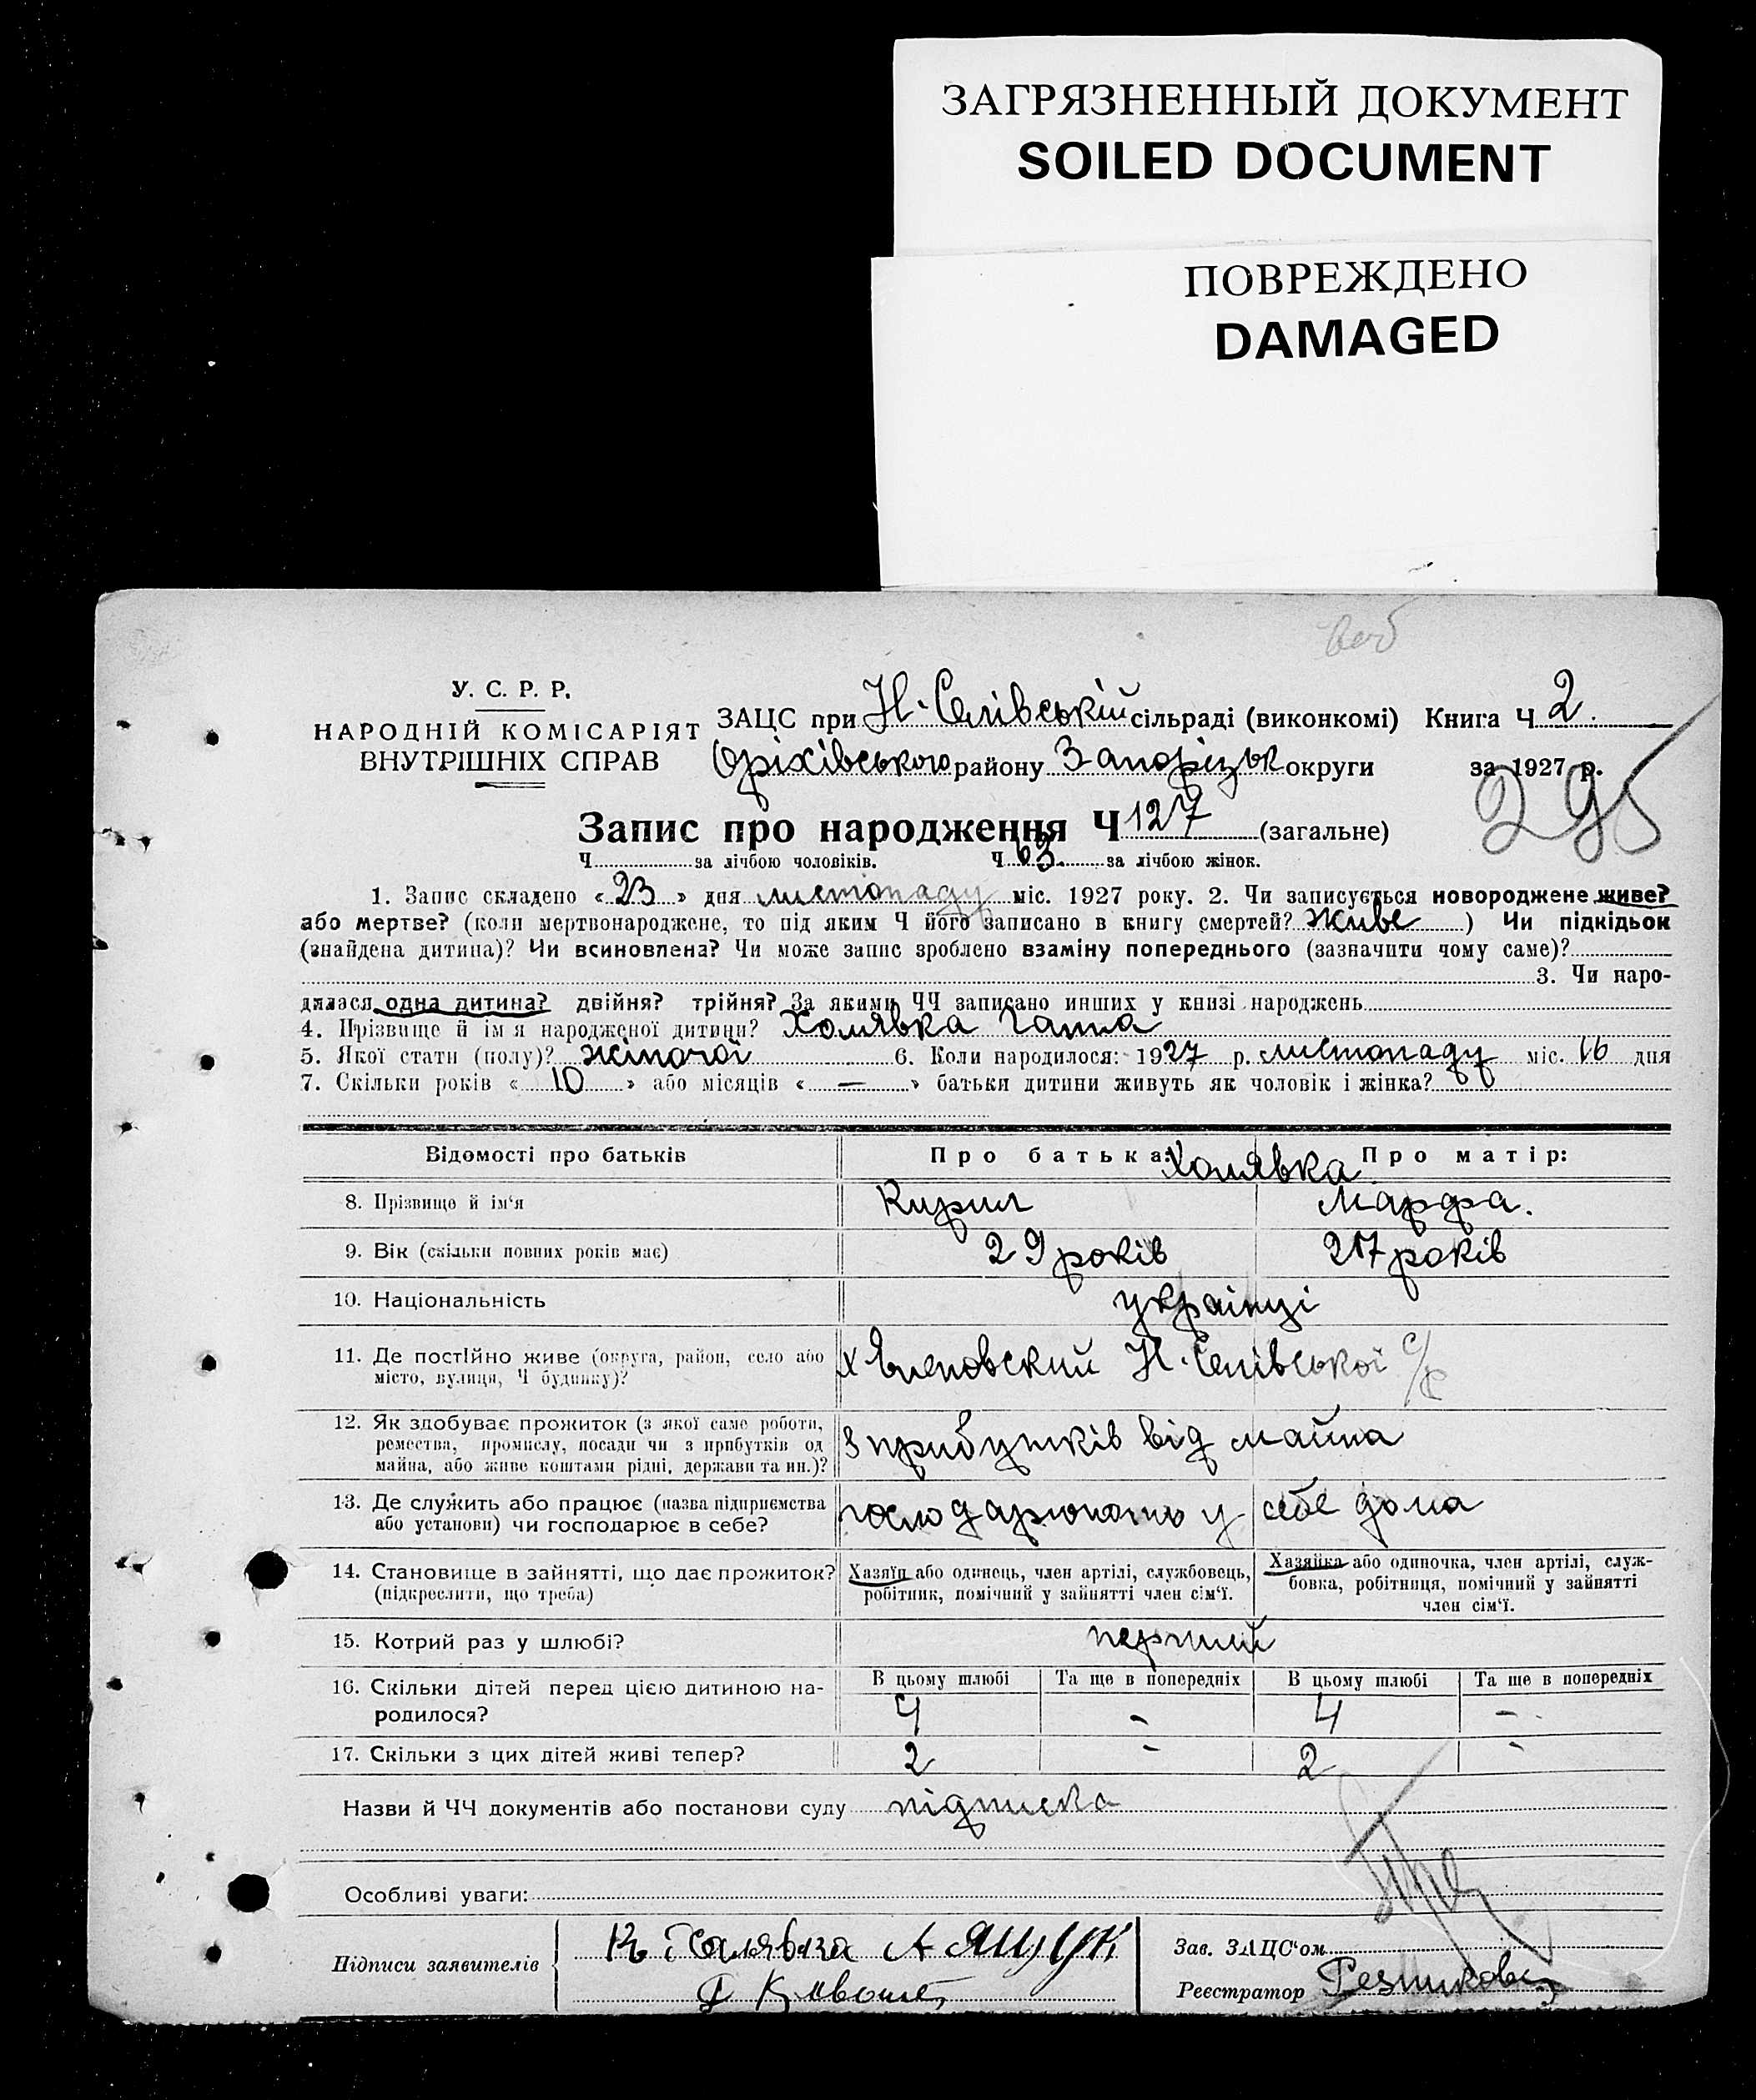 ЗАГРЯЗНЕННЫЙ ДОКУМЕНТ
SOILED DOCUMENT
ПОВРЕЖДЕНО
DAMAGED
У. С. Р. Р.
НАРОДНІЙ КОМІСАРІЯТ
ВНУТРІШНІХ СПРАВ
ЗАЦС при Н. Селівській сільраді (виконкомі) Книга Ч 2.
Оріхівського району Запорізьк округи за 1927 р.
295
Запис про народження Ч 127 (загальне)
Ч за лічбою чоловіків. Ч 63. за лічбою жінок.
1. Запис складено «23» дня листопаду міс. 1927 року. 2. Чи записується новороджене живе?
або мертве? (коли мертвонароджене, то під яким Ч його записано в книгу смертей? живе ) Чи підкідьок
(знайдена дитина)? Чи всиновлена? Чи може запис зроблено взаміну попереднього (зазначити чому саме)?
3. Чи наро-
дилася одна дитина? двійня? трійня? За якими ЧЧ записано инших у книзі народжень
4. Прізвище й ім я народженої дитини? Холявка Ганна
5. Якої стати (полу)? жіночої 6. Коли народилося: 1927 р. листопаду міс. 16 дня
7. Скільки років «10» або місяців «—» батьки дитини живуть як чоловік і жінка?
Відомості про батьків Про батька: Про матір:
Холявка
8. Прізвище й ім'я Кирил Марфа.
9. Вік (скільки повних років має) 29 років 27 років
10. Національність українці
11. Де постійно живе (округа, район, село або
місто, вулиця, Ч будинку)?
х Н. Селівської с/р
12. Як здобуває прожиток (з якої саме роботи,
ремества, промислу, посади чи з прибутків од
майна, або живе коштами рідні, держави та ин.)?
з прибутків від майна
13. Де служить або працює (назва підприємства
або установи) чи господарює в себе?
господарюють у себе дома
14. Становище в зайнятті, що дає прожиток?
(підкреслити, що треба)
Хазяїн або одинець, член артілі, службовець,
робітник, помічний у зайнятті член сім'ї.
Хазяйка або одиночка, член артілі, служ-
бовка, робітниця, помічний у зайнятті
член сім'ї.
15. Котрий раз у шлюбі? перший
16. Скільки дітей перед цією дитиною на-
родилося?
В цьому шлюбі Та ще в попередніх В цьому шлюбі Та ще в попередніх
4 - 4 -
17. Скільки з цих дітей живі тепер? 2 - 2 -
Назви й ЧЧ документів або постанови суду підписка
Особливі уваги:
Підписи заявителів
К Холявка А ЯЩУК
Зав. ЗАЦС'ом
Реєстратор